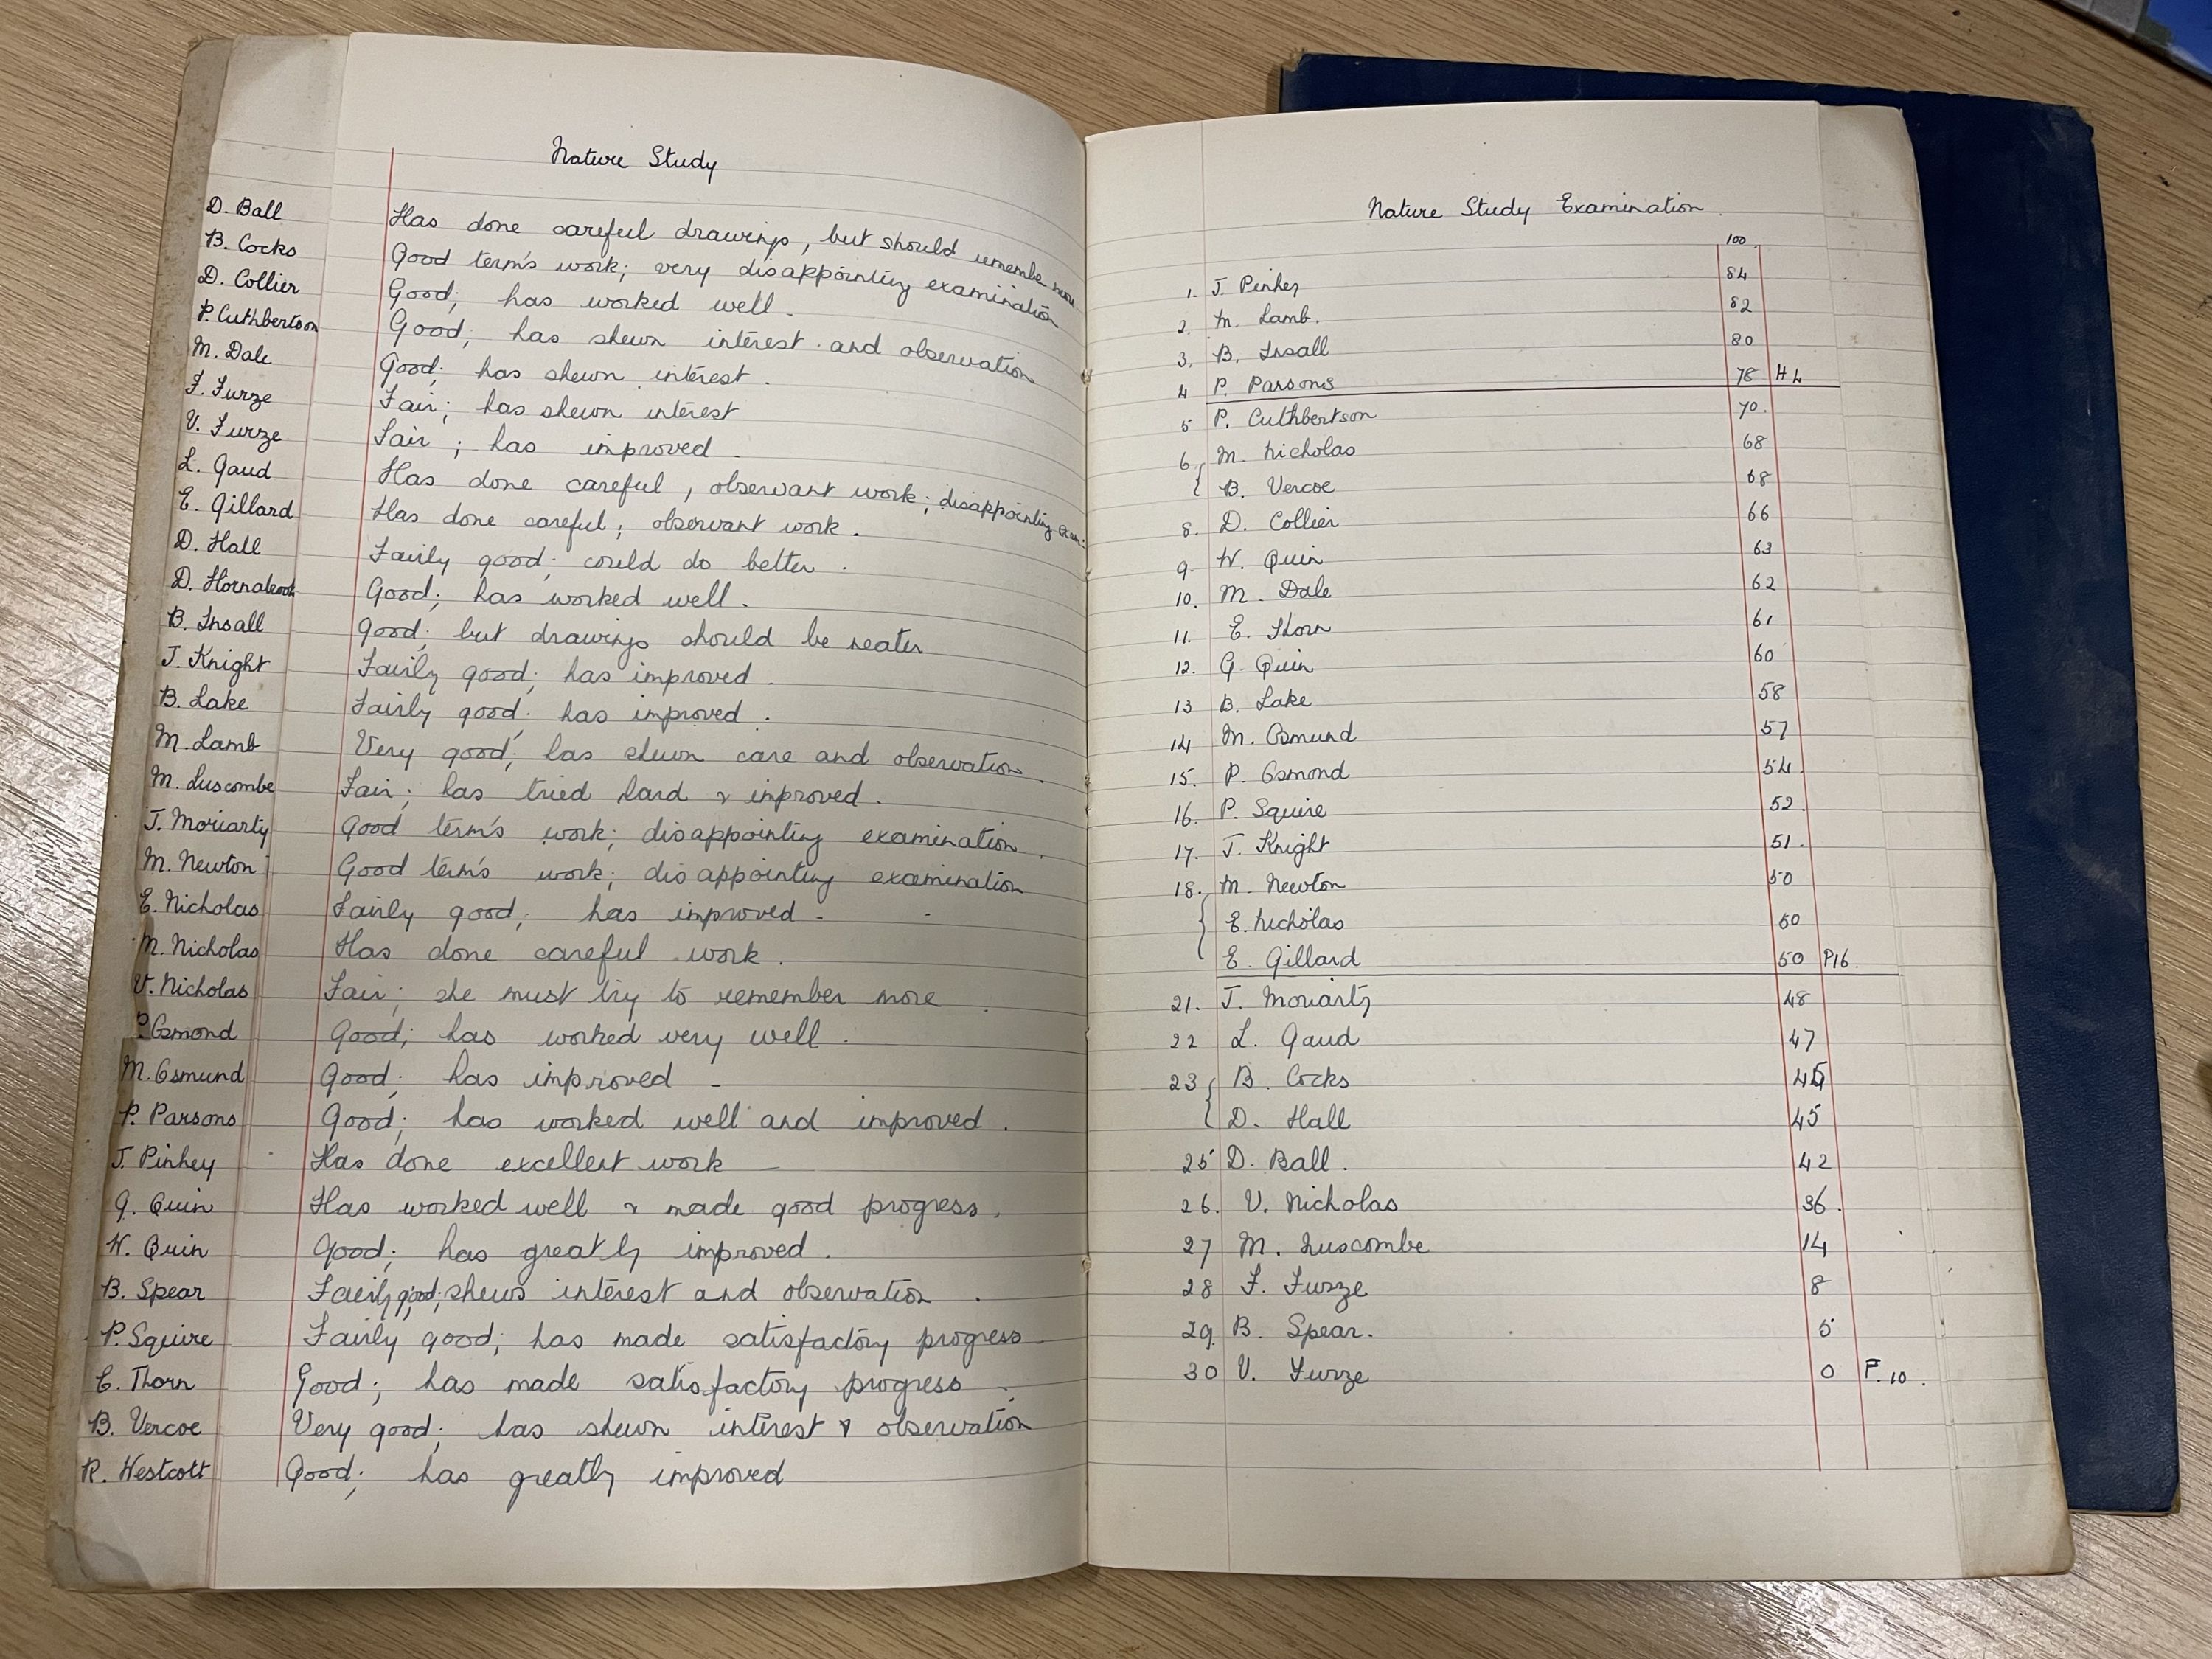 Nature Study
D. Ball Has done careful drawings, but should remember more
B. Cocks Good term's work; very disappointing examination
D. Collier Good; has worked well.
P. Cuthbertson Good; has shewn interest and observation
M. Dale Good; has shewn interest.
F. Furze Fair; has shewn interest
V. Furze Fair; has improved.
L. Gaud Has done careful, observant work; disappointing exam:
E. Gillard Has done careful; observant work.
D. Hall Fairly good; could do better.
D. Hornabrook Good; has worked well.
B. Insall Good; but drawings should be neater
J. Knight Fairly good; has improved.
B. Lake Fairly good; has improved.
M. Lamb Very good; has shewn care and observation.
M. Luscombe Fair; has tried hard & improved.
J. Moriarty Good term's work; disappointing examination.
M. Newton Good term's work; disappointing examination
E. Nicholas Fairly good; has improved.
M. Nicholas Has done careful work.
V. Nicholas Fair; she must try to remember more.
P. Osmond Good; has worked very well.
M. Osmund Good; has improved.
P. Parsons Good; has worked well and improved.
J. Pinhey Has done excellent work
G. Quin Has worked well & made good progress.
W. Quin Good; has greatly improved.
B. Spear Fairly good; shews interest and observation.
P. Squire Fairly good; has made satisfactory progress.
E. Thorn Good; has made satisfactory progress.
B. Vercoe Very good; has shewn interest & observation
R. Westcott Good; has greatly improved
Nature Study Examination
100
1. J. Pinhey 84
2. M. Lamb. 82
3. B. Insall 80
4 P. Parsons 78 H4
5 P. Cuthbertson 70.
6. M. Nicholas 68
B. Vercoe 68
8. D. Collier 66
9. W. Quin 63
10. M. Dale 62
11. E. Thorn 61
12. G. Quin 60
13 B. Lake 58
14 M. Osmund 57
15. P. Osmond 54.
16. P. Squire 52.
17. J. Knight 51.
18. M. Newton 50
E. Nicholas 50
E. Gillard 50 P16.
21. J. Moriarty 48
22 L. Gaud 47
23 B. Cocks 45
D. Hall 45
25 D. Ball. 42
26. V. Nicholas 36.
27 M. Luscombe 14
28 F. Furze 8
29. B. Spear. 5
30 V. Furze 0 F.10.